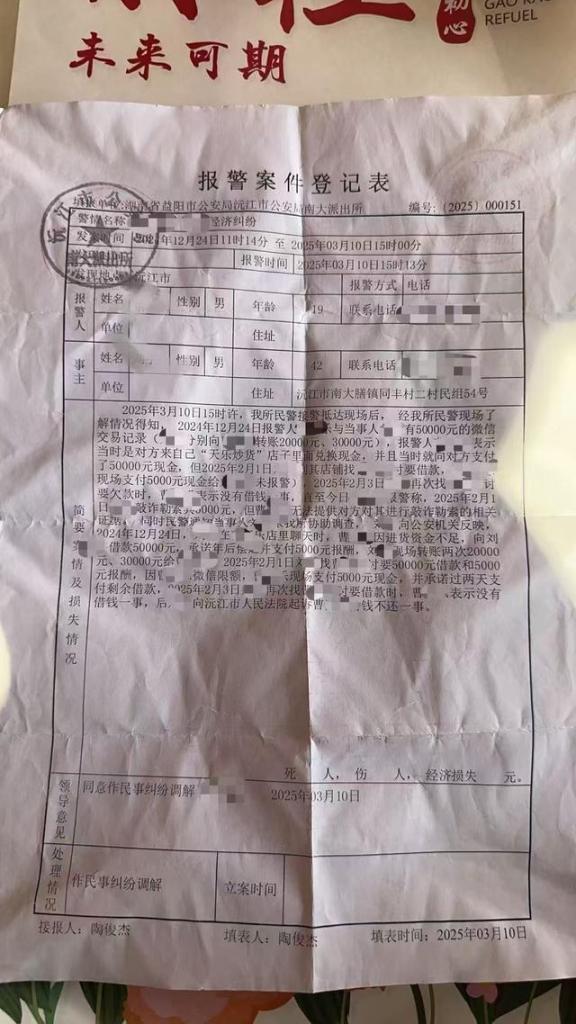 初心
GAO KAO
REFUEL
未来可期
报警案件登记表
填报单位:湖南省益阳市公安局沅江市公安局南大派出所 编号:〔2025〕000151
警情名称 经济纠纷
发案时间 2024年12月24日11时14分 至 2025年03月10日15时00分
报警时间 2025年03月10日15时13分
发现地点 沅江市 报警方式 电话
报警人 姓名 性别 男 年龄 19 联系电话
单位 住址
事主 姓名 性别 男 年龄 42 联系电话
单位 住址 沅江市南大膳镇同丰村二村民组54号
简要案情及损失情况
2025年3月10日15时许,我所民警接警抵达现场后,经我所民警现场了
解情况得知,2024年12月24日报警人 与当事人 有50000元的微信
交易记录( 分别向 转账20000元、30000元),报警人 表示
当时是对方来自己“天乐炒货”店子里面兑换现金,并且当时就向对方支
付了50000元现金,但2025年2月1日 到其店铺找 讨要借款,
现场支付5000元现金给 未报警),2025年2月3日 再次找 讨
要欠款时,曹 表示没有借钱一事,直至今日 报警称,2025年2月1
日 敲诈勒索其5000元,但曹 无法提供对方对其进行敲诈勒索的相关
证据,同时民警通知当事人 来我所协助调查, 向公安机关反映,
2024年12月24日, 在 店里聊天时,曹 因进货资金不足,向刘
借款50000元,承诺年后偿 并支付5000元报酬, 现场转账两次20000
元、30000元给 2025年2月1日 找 讨要50000元借款和5000
元报酬,因 微信限额, 现场支付5000元现金,并承诺过两天支
付剩余借款,2025年2月3日 再次找 讨要借款时,曹 表示没有
借钱一事,后 向沅江市人民法院起诉曹 钱不还一事。
死 人,伤 人,经济损失 元。
领导意见 同意作民事纠纷调解 2025年03月10日
处理情况 作民事纠纷调解 立案时间
接报人:陶俊杰 填表人:陶俊杰 填表时间:2025年03月10日